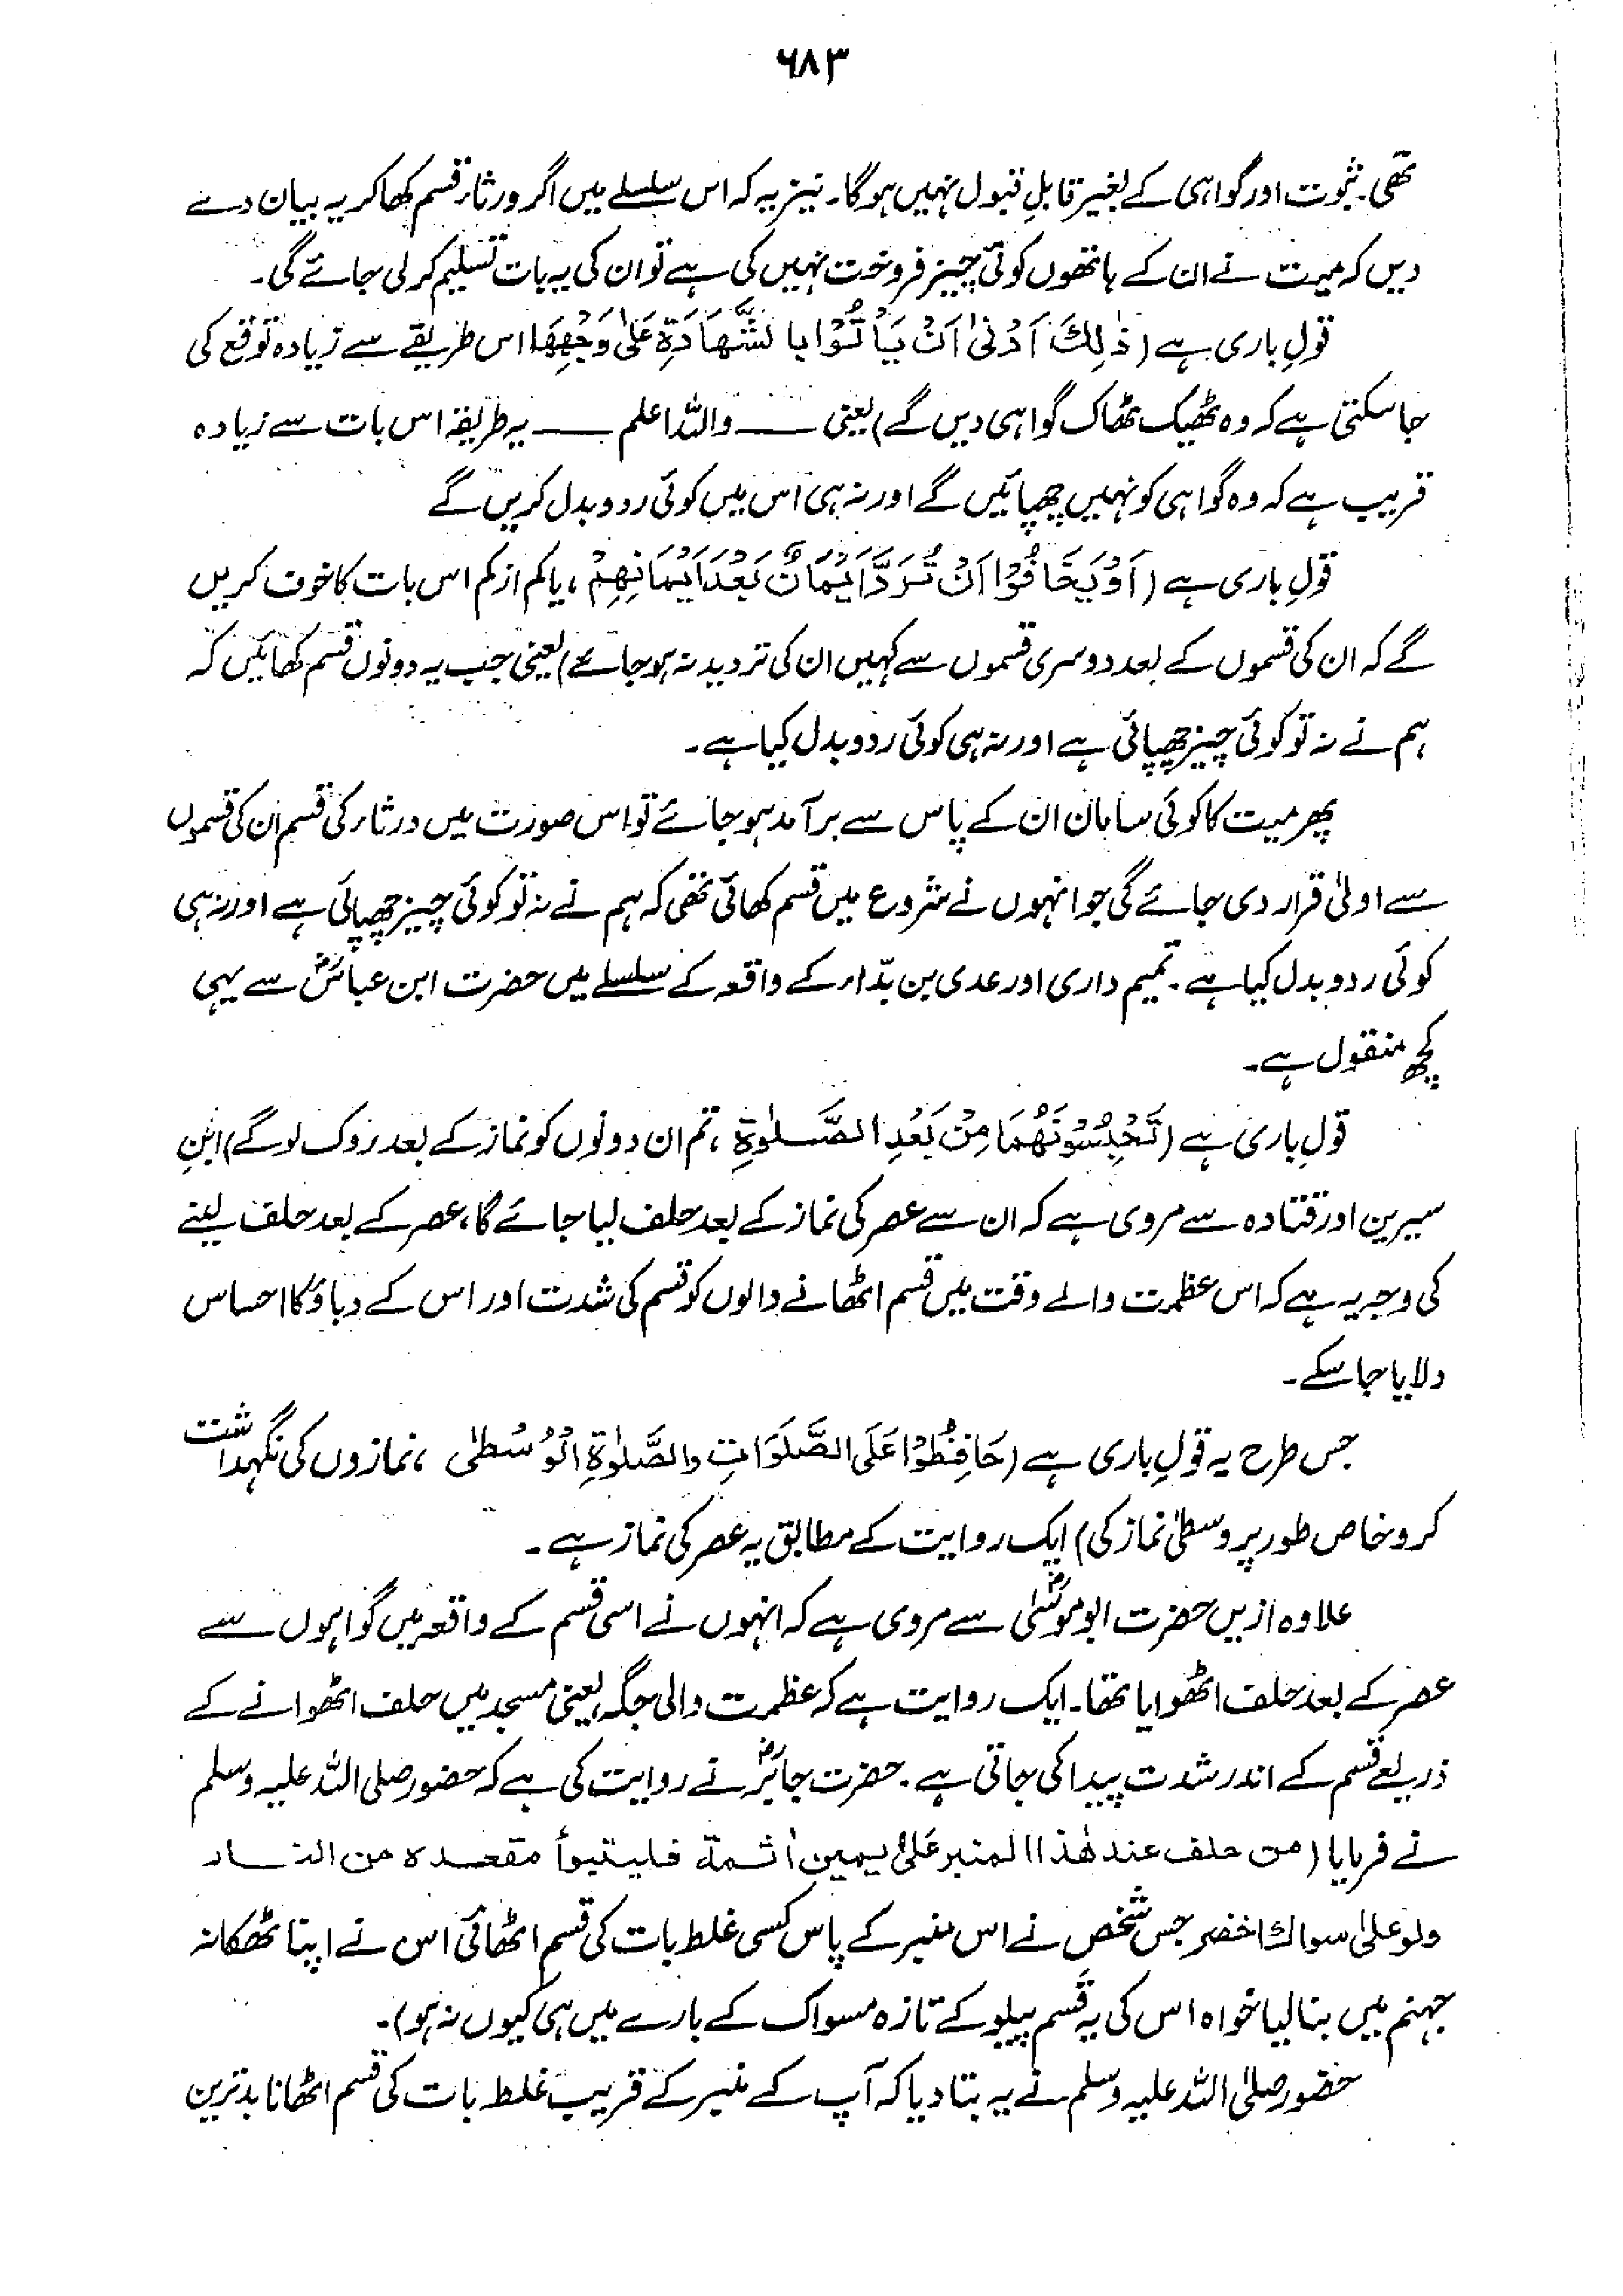 ٦٨٣
تھی۔ ثبوت اور گواہی کے بغیر قابلِ قبول نہیں ہوگا۔ نیز یہ کہ اس سلسلے میں اگر ورثاء قسم کھا کر یہ بیان دے
دیں کہ میت نے ان کے ہاتھوں کوئی چیز فروخت نہیں کی ہے تو ان کی یہ بات تسلیم کر لی جائے گی۔
قولِ باری ہے (ذٰلِكَ اَدْنٰى اَنْ يَاْتُوْا بِالشَّهَادَةِ عَلٰى وَجْهِهَا اس طریقے سے زیادہ توقع کی
جاسکتی ہے کہ وہ ٹھیک ٹھاک گواہی دیں گے) یعنی ـــــ واللہ اعلم ـــــ یہ طریقہ اس بات سے زیادہ
قریب ہے کہ وہ گواہی کو نہیں چھپائیں گے اور نہ ہی اس میں کوئی ردوبدل کریں گے
قولِ باری ہے (اَوْ يَخَافُوْا اَنْ تُرَدَّ اَيْمَانٌ بَعْدَ اَيْمَانِهِمْ، یا کم از کم اس بات کا خوف کریں
گے کہ ان کی قسموں کے بعد دوسری قسموں سے کہیں ان کی تردید نہ ہو جائے) یعنی جب یہ دونوں قسم کھائیں کہ
ہم نے نہ تو کوئی چیز چھپائی ہے اور نہ ہی کوئی ردوبدل کیا ہے۔
پھر میت کا کوئی سامان ان کے پاس سے برآمد ہو جائے تو اس صورت میں ورثاء کی قسم ان کی قسموں
سے اولیٰ قرار دی جائے گی جو انہوں نے شروع میں قسم کھائی تھی کہ ہم نے نہ تو کوئی چیز چھپائی ہے اور نہ ہی
کوئی ردوبدل کیا ہے۔ تمیم داری اور عدی بن بدّاء کے واقعہ کے سلسلے میں حضرت ابن عباسؓ سے یہی
کچھ منقول ہے۔
قولِ باری ہے (تَحْبِسُوْنَهُمَا مِنْ بَعْدِ الصَّلٰوةِ، تم ان دونوں کو نماز کے بعد روک لو گے) ابنِ
سیرین اور قتادہ سے مروی ہے کہ ان سے عصر کی نماز کے بعد حلف لیا جائے گا، عصر کے بعد حلف لینے
کی وجہ یہ ہے کہ اس عظمت والے وقت میں قسم اٹھانے والوں کو قسم کی شدت اور اس کے دباؤ کا احساس
دلایا جا سکے۔
جس طرح یہ قولِ باری ہے (حَافِظُوْا عَلَى الصَّلَوَاتِ والصَّلٰوةِ الْوُسْطٰى، نمازوں کی نگہداشت
کرو خاص طور پر وسطیٰ نماز کی) ایک روایت کے مطابق یہ عصر کی نماز ہے۔
علاوہ ازیں حضرت ابوموسیٰؓ سے مروی ہے کہ انہوں نے اسی قسم کے واقعہ میں گواہوں سے
عصر کے بعد حلف اٹھوایا تھا۔ ایک روایت ہے کہ عظمت والی جگہ یعنی مسجد میں حلف اٹھوانے کے
ذریعے قسم کے اندر شدت پیدا کی جاتی ہے۔ حضرت جابرؓ نے روایت کی ہے کہ حضور صلی اللہ علیہ وسلم
نے فرمایا (من حلف عند هٰذا المنبر علىٰ يمين اٰثمة فليتبوأ مقعده من النار
ولو علیٰ سواك اخضر جس شخص نے اس منبر کے پاس کسی غلط بات کی قسم اٹھائی اس نے اپنا ٹھکانہ
جہنم میں بنا لیا خواہ اس کی یہ قسم پیلو کے تازہ مسواک کے بارے میں ہی کیوں نہ ہو)۔
حضور صلی اللہ علیہ وسلم نے یہ بتا دیا کہ آپ کے منبر کے قریب غلط بات کی قسم اٹھانا بدترین